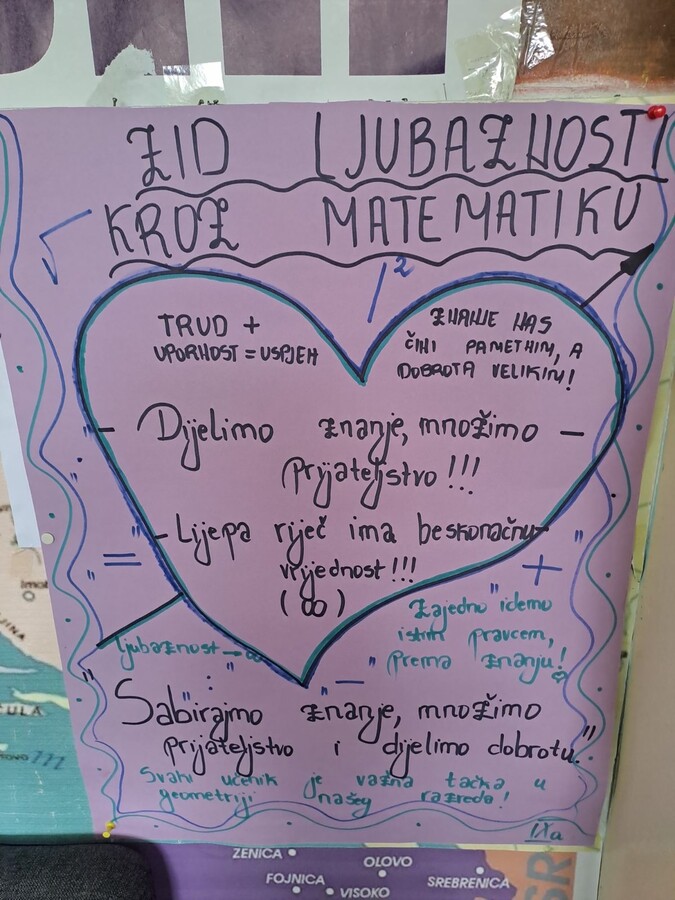 ZID LJUBAZNOSTI
KROZ MATEMATIKU
√
/²
TRUD +
UPORNOST = USPJEH
ZNANJE NAS
ČINI PAMETNIM, A
DOBROTA VELIKIM!
- Dijelimo znanje, množimo -
prijateljstvo!!!
- Lijepa riječ ima beskonačnu-
vrijednost!!!
(∞)
" = "
" + "
Zajedno idemo
istim pravcem,
prema znanju!
ljubaznost → ∞
" : "
" - "
Sabirajmo znanje, množimo
prijateljstvo i dijelimo dobrotu."
Svaki učenik je važna tačka u
geometriji našeg razreda!
IXa
ULA
ZENICA
OLOVO
FOJNICA
VISOKO
SREBRENICA
SR